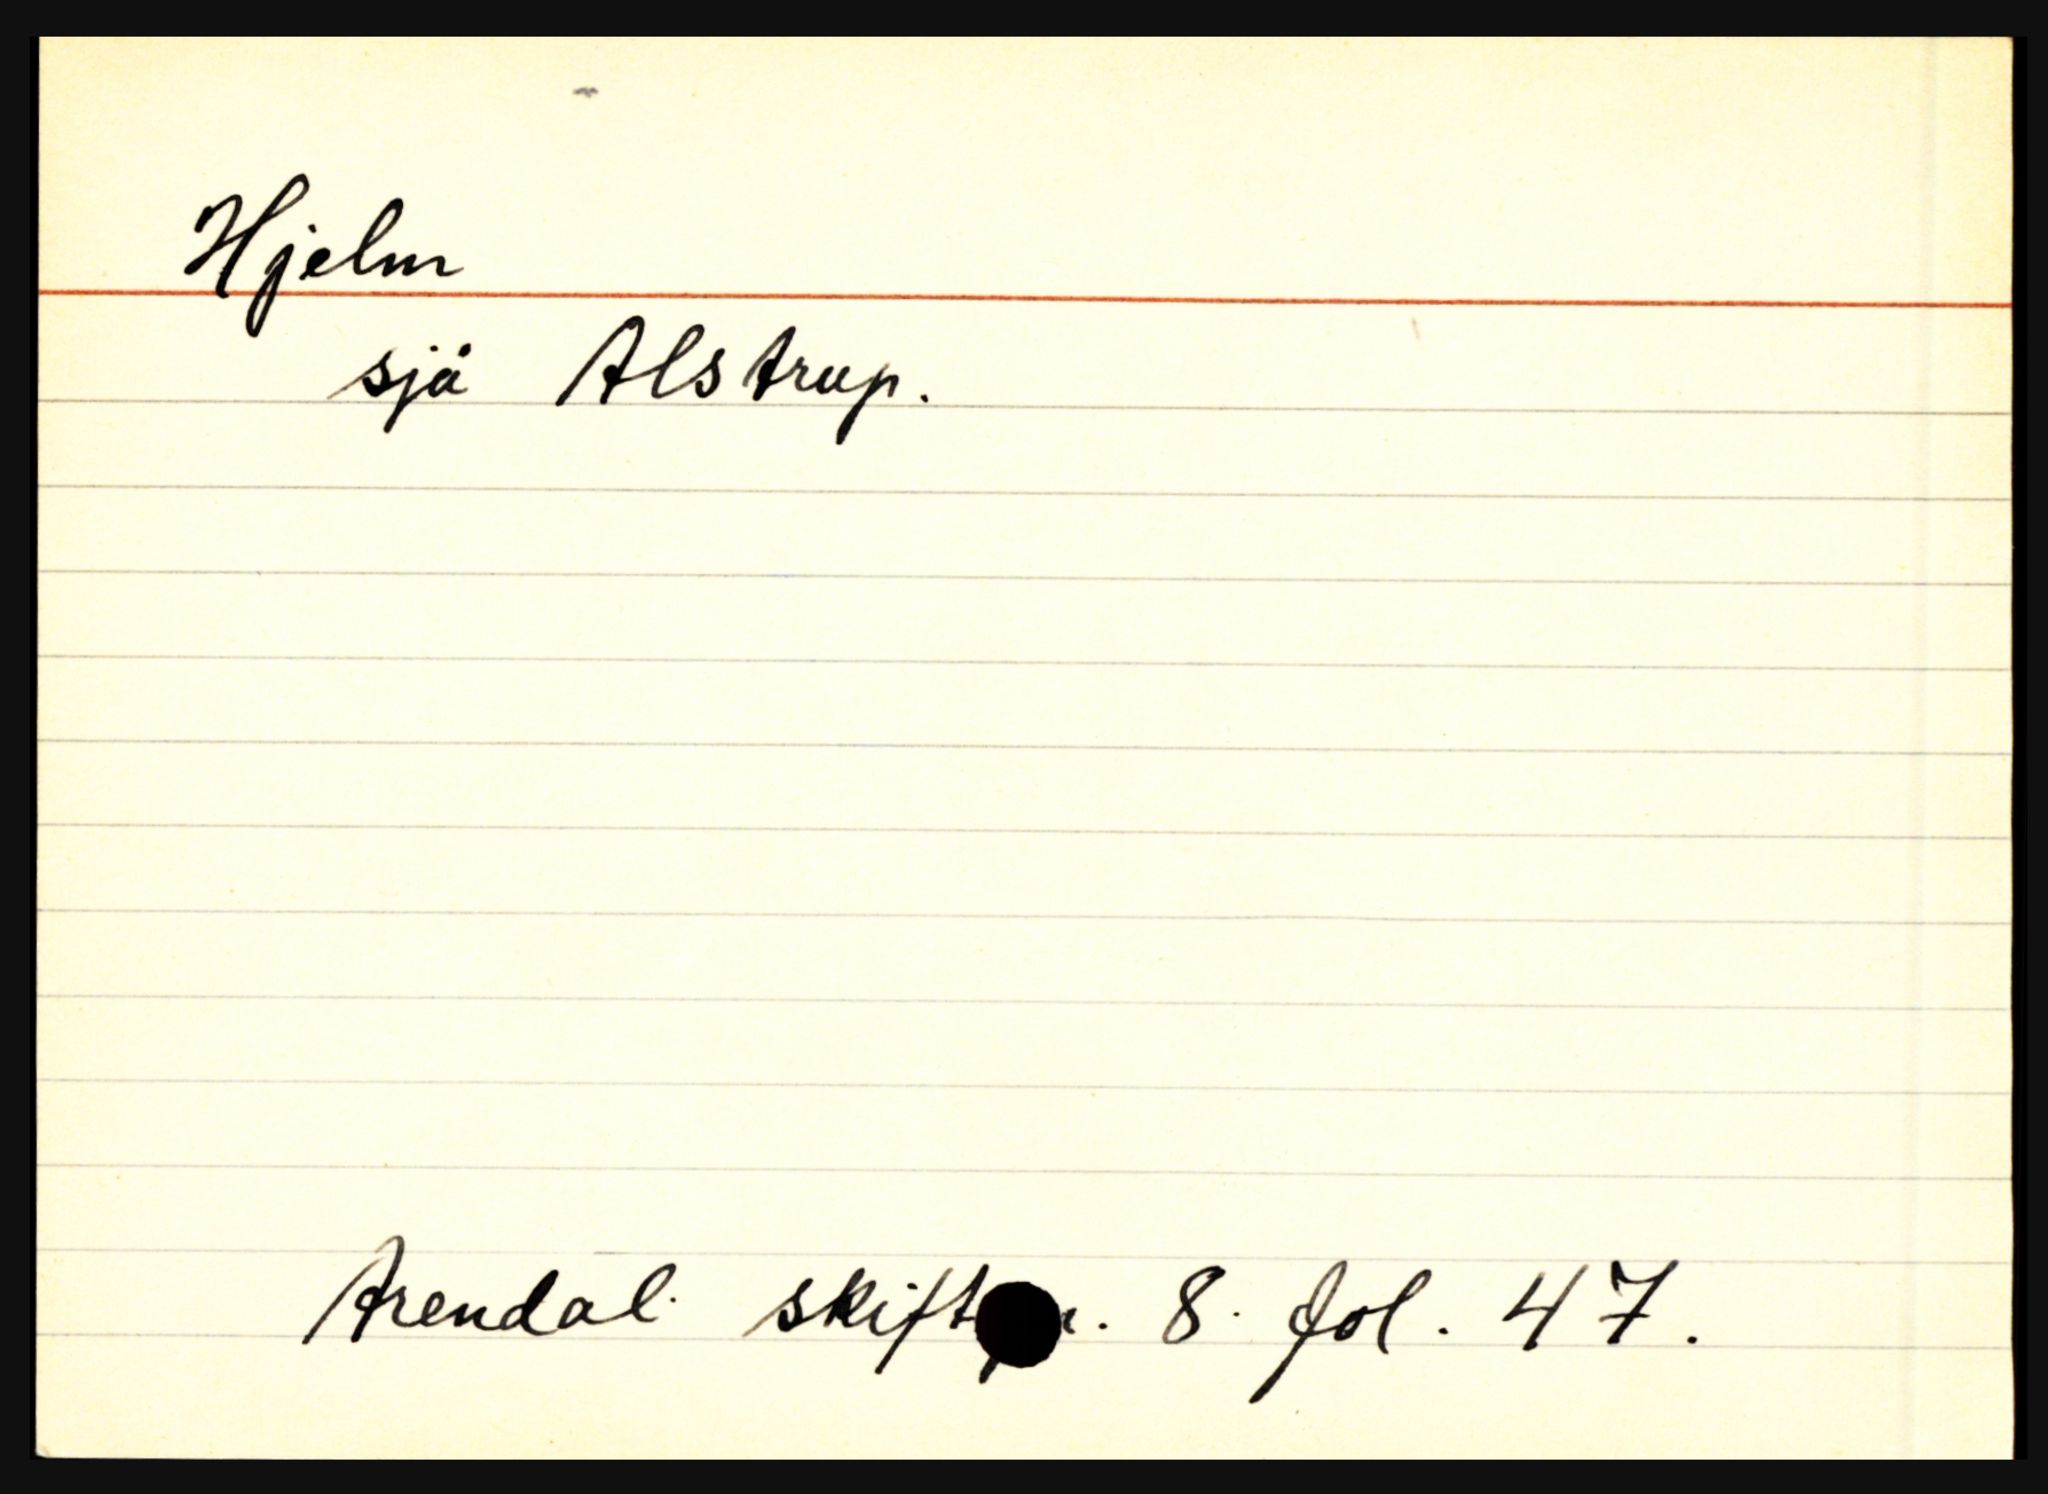 Hjelm
sjå Alstrup.
Arendal 8. fol. 47.